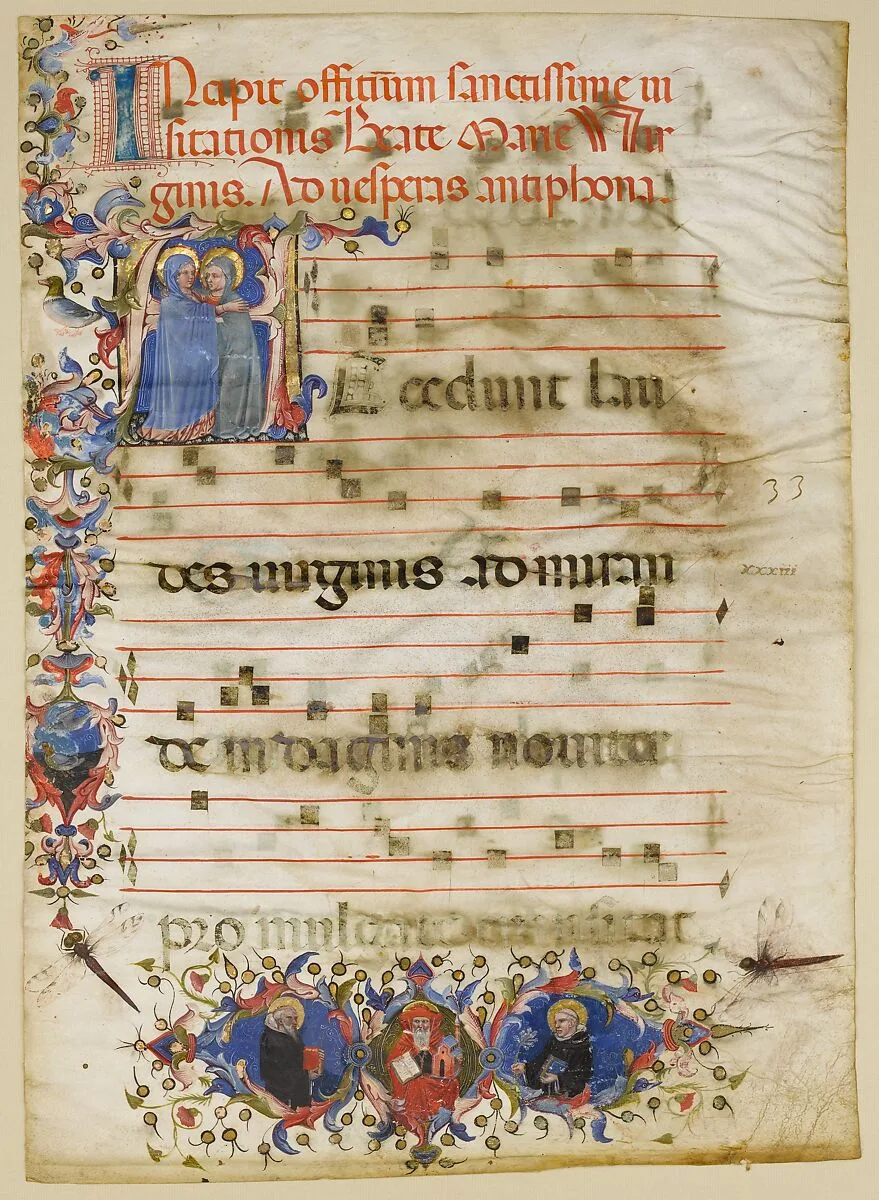 INcipit offitiūm sanctissime ui
sitationis Beate Marie Vir
ginis. Ad uesperas antiphona.
Accedunt lau
33
des uirginis admiran
xxxiii
de indaginis nouiter
promulgate